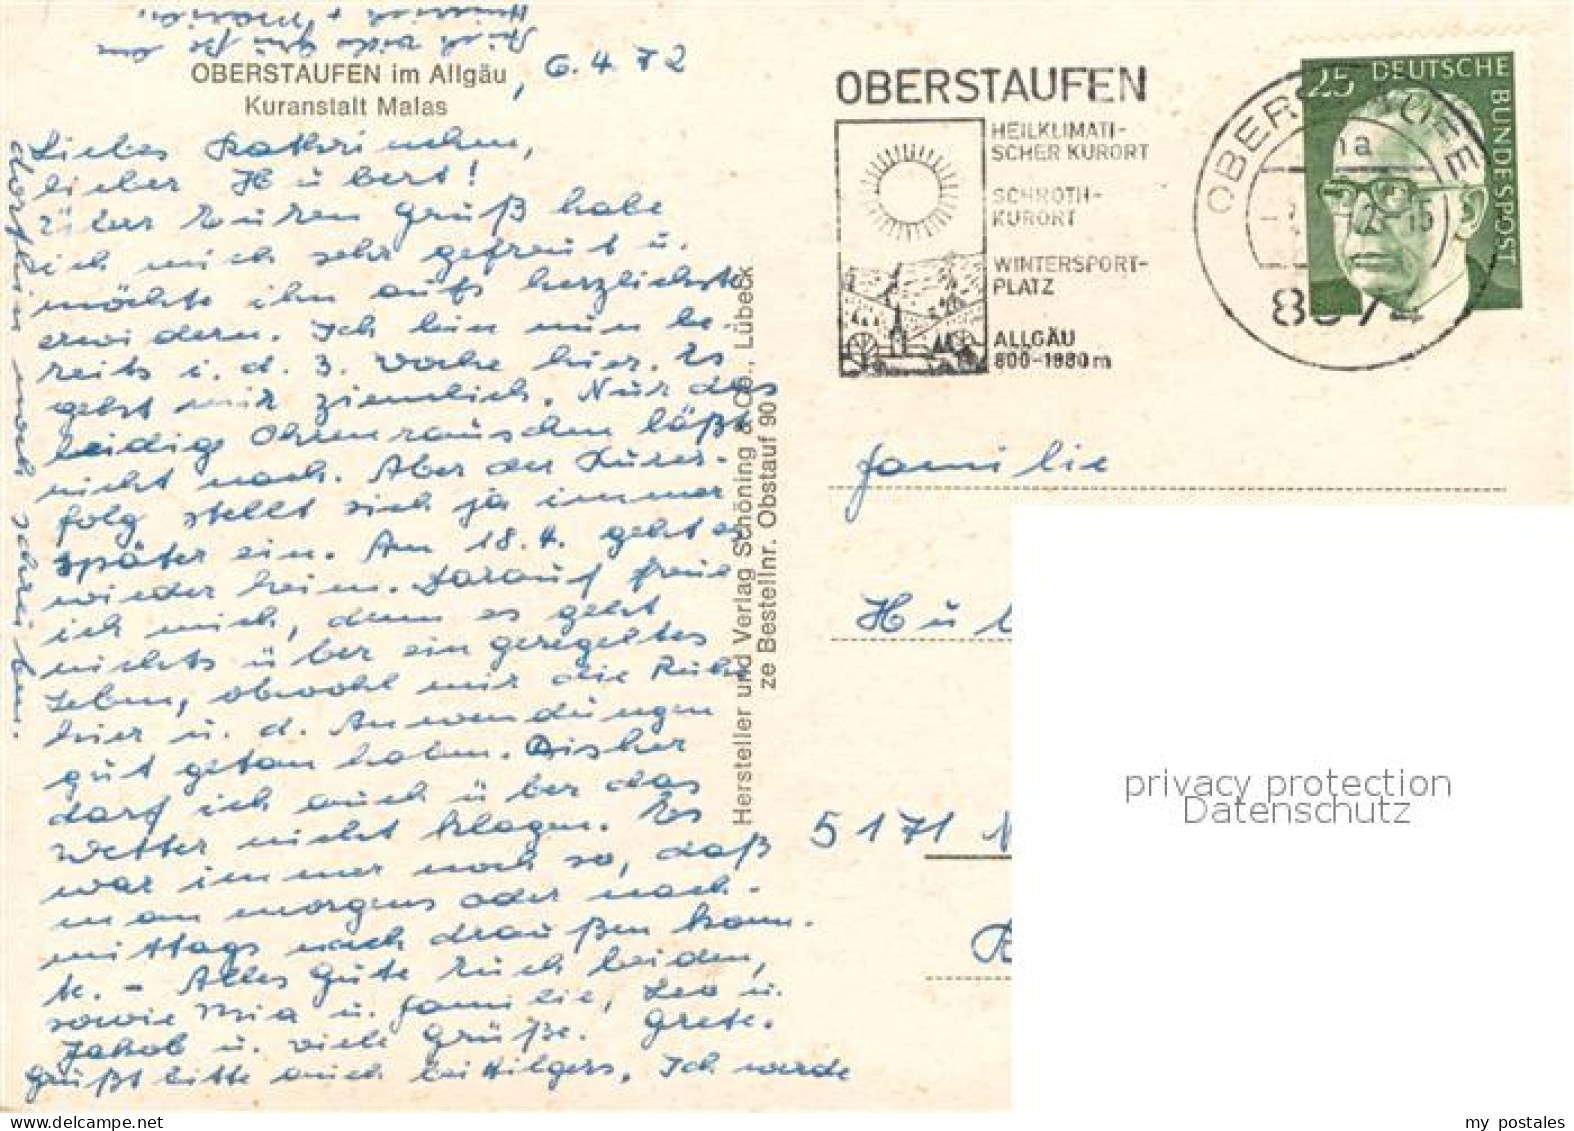 OBERSTAUFEN im Allgäu
Kuranstalt Malas
6.4.72
Liebes Kathrinchen,
lieber Hubert!
Über Euren Gruß habe
ich mich sehr gefreut u.
möchte ihn aufs herzlichste
erwidern. Ich bin nun be-
reits i. d. 3. Woche hier. Es
geht mir ziemlich. Nur das
leidige Ohrenrauschen läßt
nicht nach. Aber der Kurer-
folg stellt sich ja immer
später ein. Am 18.4. geht es
wieder heim. Darauf freue
ich mich, denn es geht
nichts über ein geregeltes
Leben, obwohl mir die Ruhe
hier u. d. Anwendungen
gut getan haben. Bisher
darf ich auch über das
Wetter nicht klagen. Es
war immer noch so, daß
man morgens oder nach-
mittags nach draußen konn-
te. - Alles Gute Euch beiden,
sowie Mia u. Familie, Leo u.
Jakob u. viele Grüße. Grete.
Grüßt bitte auch bei Hilgers. Ich werde
dorthin noch schreiben.
viele Grüße an
Heinrich + Maria.
Hersteller und Verlag Schöning & Co., Lübeck
ze Bestellnr. Obstauf 90
OBERSTAUFEN
HEILKLIMATI-
SCHER KURORT
SCHROTH-
KURORT
WINTERSPORT-
PLATZ
ALLGÄU
800-1880m
25 DEUTSCHE BUNDESPOST
8974
Familie
5171
privacy protection
Datenschutz
my postales